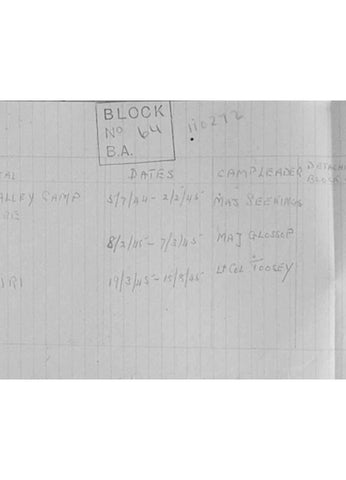 BLOCK
No 64
B.A.
110272
DATES CAMPLEADER
ALLEY CAMP 5/7/44 - 2/2/45 MAJ SEEKINGS
8/2/45 - 7/3/45 MAJ GLOSSOP
IRI 19/3/45 - 15/5/45 Lt Col TOOSEY
BLOCK